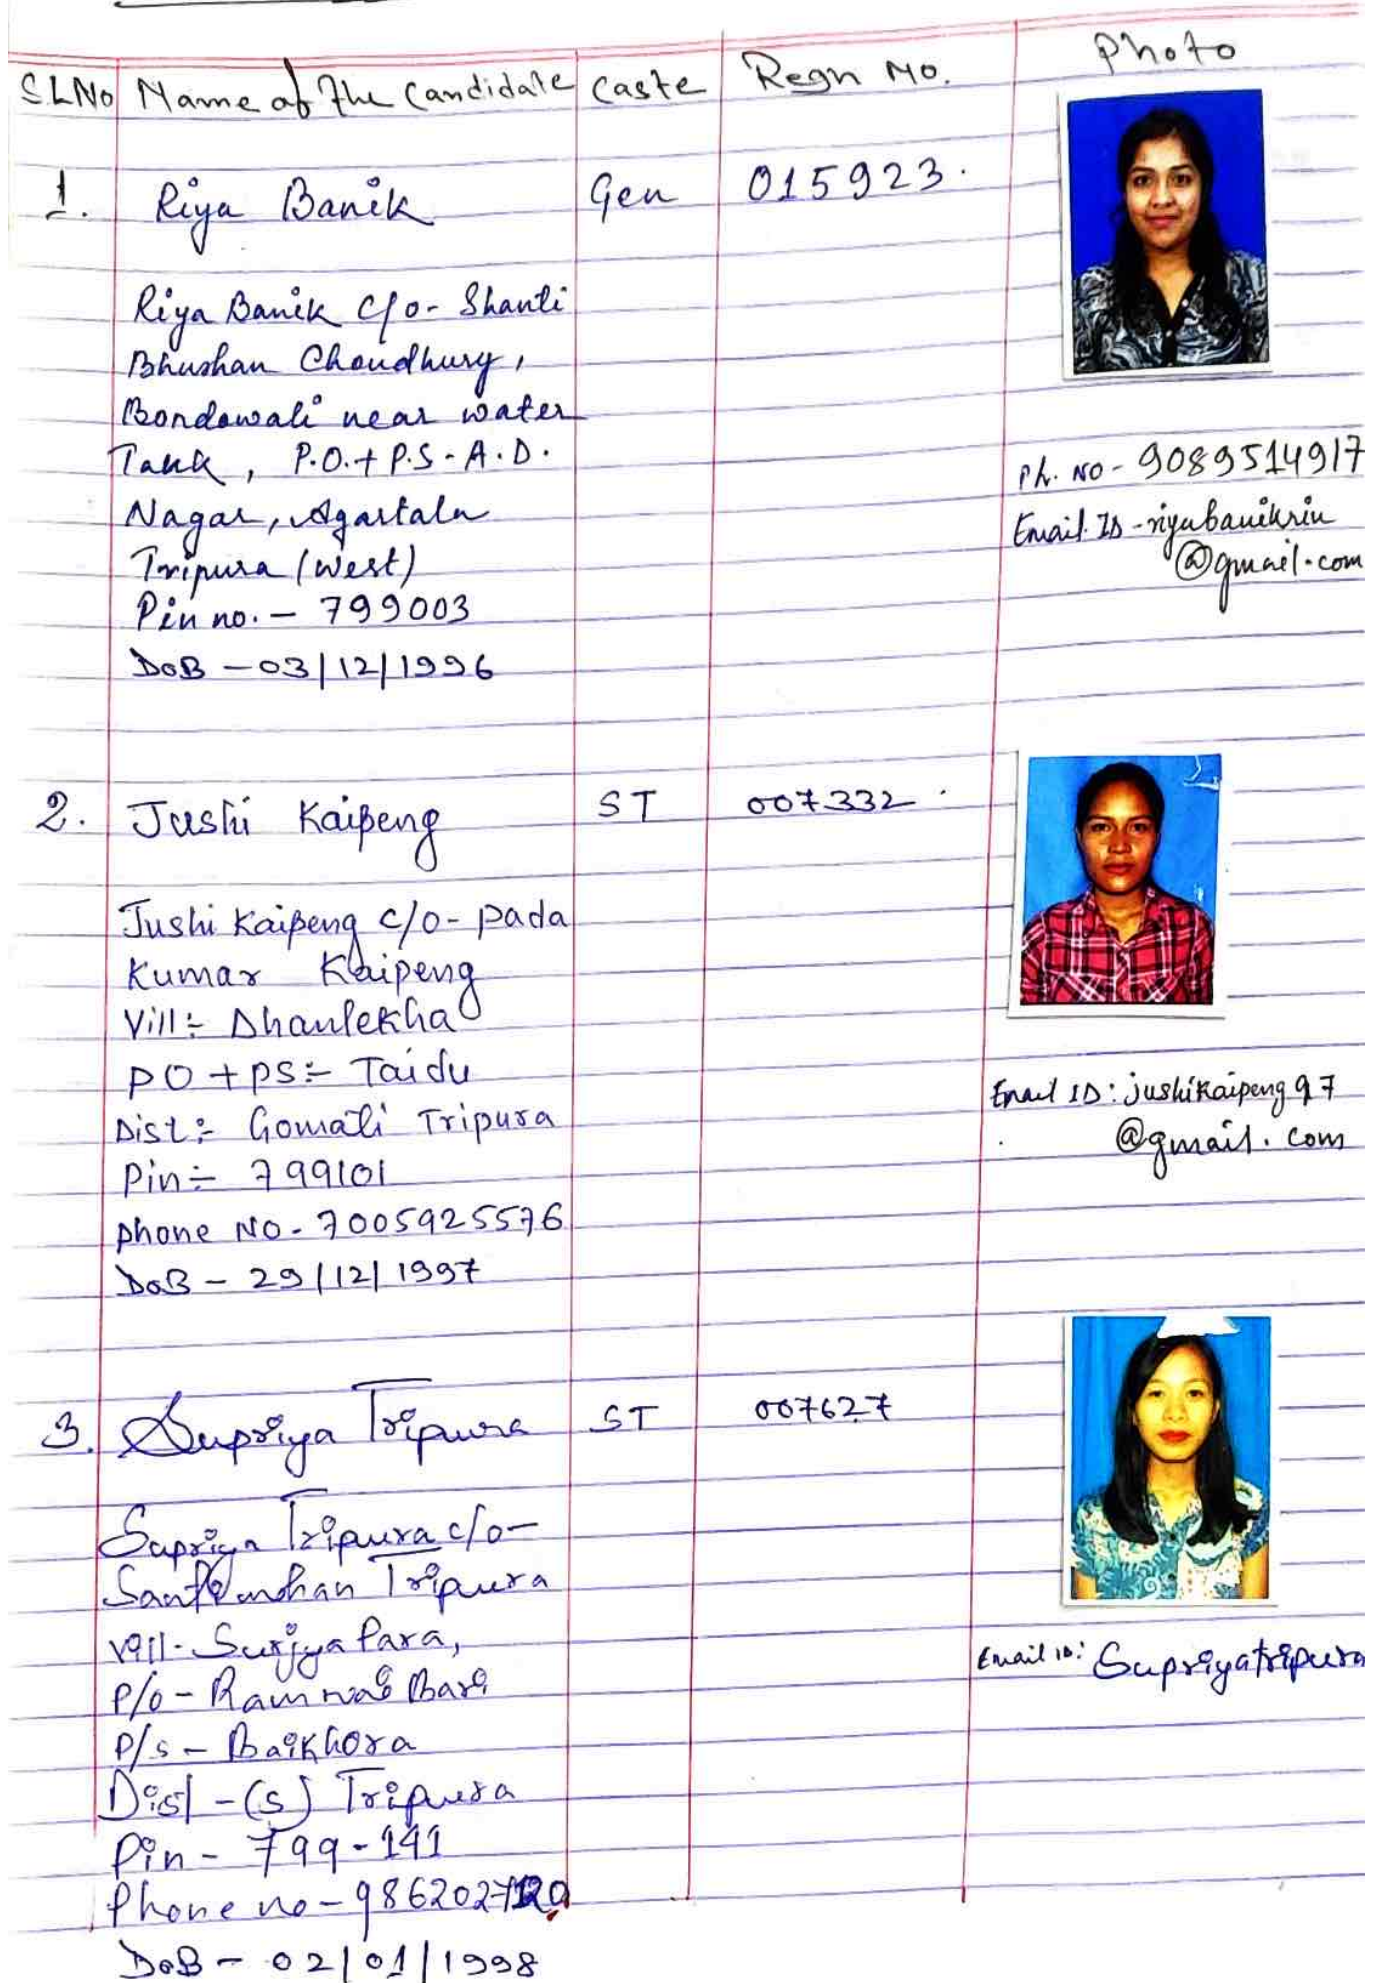 SLNo Name of the Candidate Caste Regn No. Photo
1. Riya Banik Gen 015923.
Riya Banik C/o- Shanti
Bhushan Choudhury,
Bondowali near water
Tank, P.O.+ P.S - A.D.
Nagar, Agartala
Tripura (West)
Pin no. - 799003
DoB - 03/12/1996
Ph. NO - 9089514917
Email ID - riyabanikrin
@gmail.com
2. Jushi Kaipeng ST 007332
Jushi Kaipeng c/o- pada
Kumar Kaipeng
Vill:- Dhanlekha
PO + PS:- Taidu
Dist:- Gomati Tripura
Pin:- 799101
phone NO - 7005925576
DoB - 29/12/1997
Email ID: jushikaipeng97
@gmail.com
3. Supriya Tripura ST 007627
Supriya Tripura c/o-
Tripura
vill- Surjya Para,
P/o - Bari
P/s - Baikhora
Dist - (S) Tripura
Pin - 799-141
Phone no -
DoB - 02/01/1998
Email ID: Supriyatripura